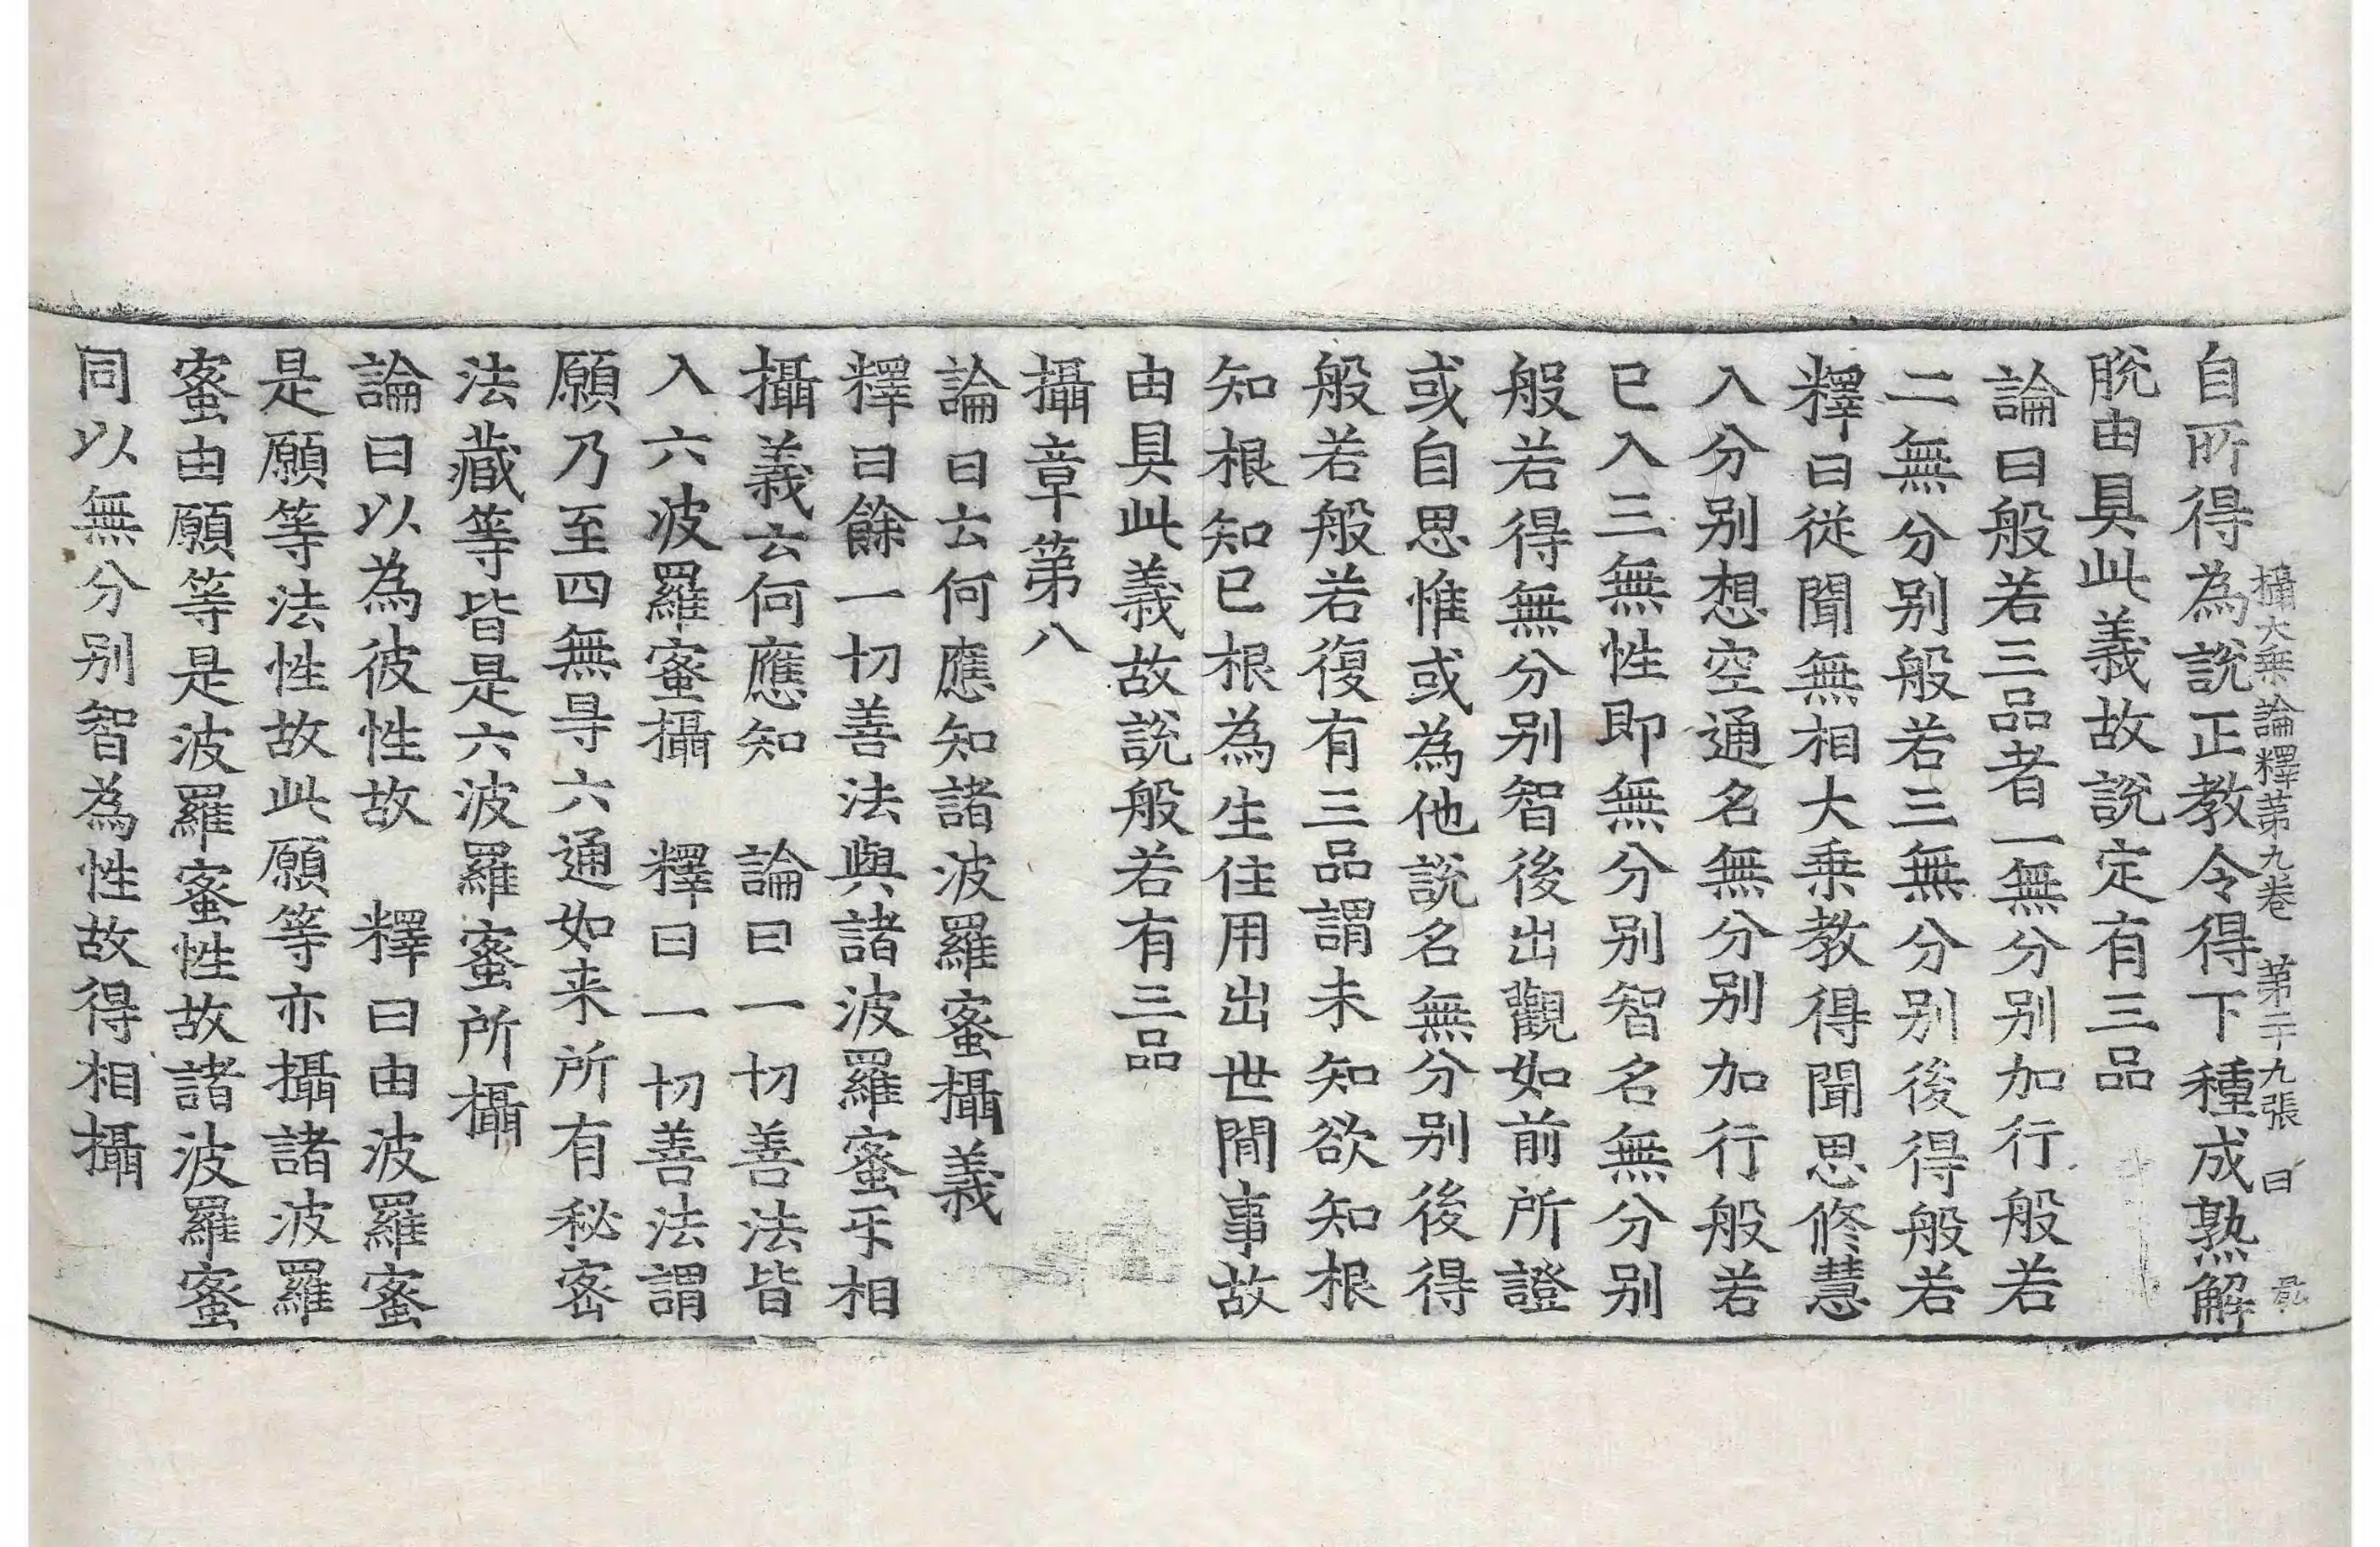 攝大乘論釋第九卷 第二十九張 曰
自所得為說正教令得下種成熟解
脫由具此義故說定有三品
論曰般若三品者一無分別加行般若
二無分別般若三無分別後得般若
釋曰從聞無相大乘教得聞思修慧
入分別想空通名無分別加行般若
已入三無性即無分別智名無分別
般若得無分別智後出觀如前所證
或自思惟或為他說名無分別後得
般若般若復有三品謂未知欲知根
知根知已根為生住用出世間事故
由具此義故說般若有三品
攝章第八
論曰云何應知諸波羅蜜攝義
釋曰餘一切善法與諸波羅蜜㸦相
攝義云何應知 論曰一切善法皆
入六波羅蜜攝 釋曰一切善法謂
願乃至四無㝵六通如来所有秘密
法藏等皆是六波羅蜜所攝
論曰以為彼性故 釋曰由波羅蜜
是願等法性故此願等亦攝諸波羅
蜜由願等是波羅蜜性故諸波羅蜜
同以無分别智為性故得相攝